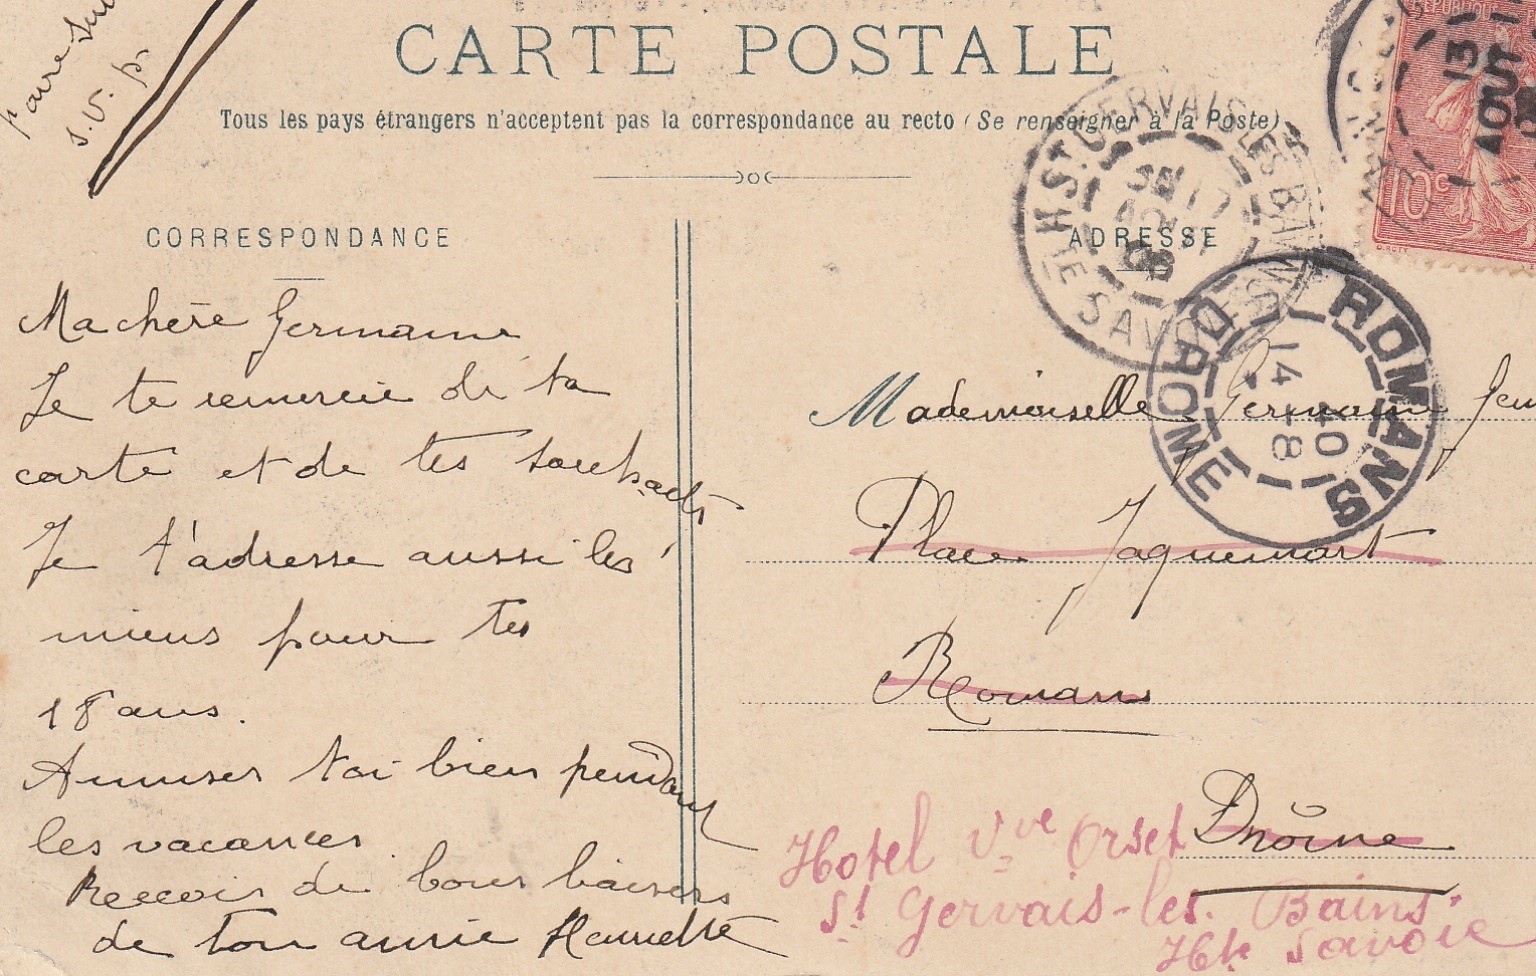 CARTE POSTALE
Tous les pays étrangers n'acceptent pas la correspondance au recto (Se renseigner à la Poste)
faire
s. v. p.
CORRESPONDANCE
Ma chère Germaine
Je te remercie de ta
carte et de tes souhaits
Je t'adresse aussi les
miens pour tes
18 ans.
Amuses toi bien pendant
les vacances
Recois de bons baisers
de ton amie Henriette
ADRESSE
Mademoiselle Germaine
Place Jaquemart
Romans
Drôme
Hotel Vve Orset
St Gervais-les-Bains.
Hte Savoie
ST GERVAIS LES BAINS
HTE SAVOIE
AOUT
06
ROMANS
DROME
14 -8
13
AOUT
REPUBLIQUE
10c